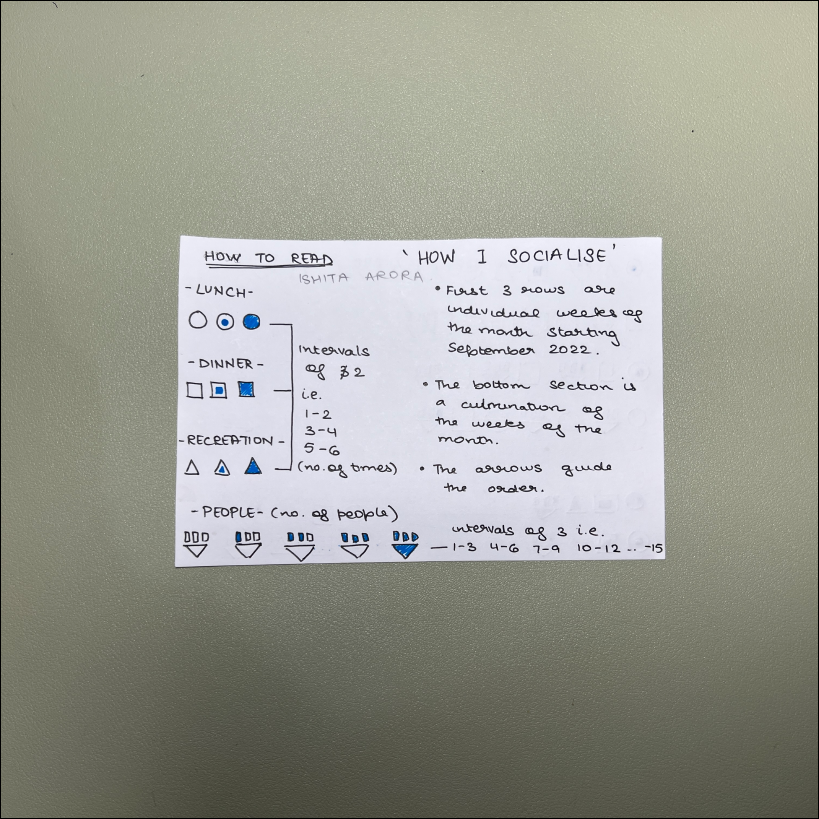 HOW TO READ
'HOW I SOCIALISE'
ISHITA ARORA
-LUNCH-
-DINNER-
-RECREATION-
Intervals
of 2
i.e.
1-2
3-4
5-6
(no. of times)
-PEOPLE- (no. of people)
• First 3 rows are
individual weeks of
the month starting
September 2022.
• The bottom section is
a culmination of
the weeks of the
month.
• The arrows guide
the order.
intervals of 3 i.e.
— 1-3 4-6 7-9 10-12 .. -15